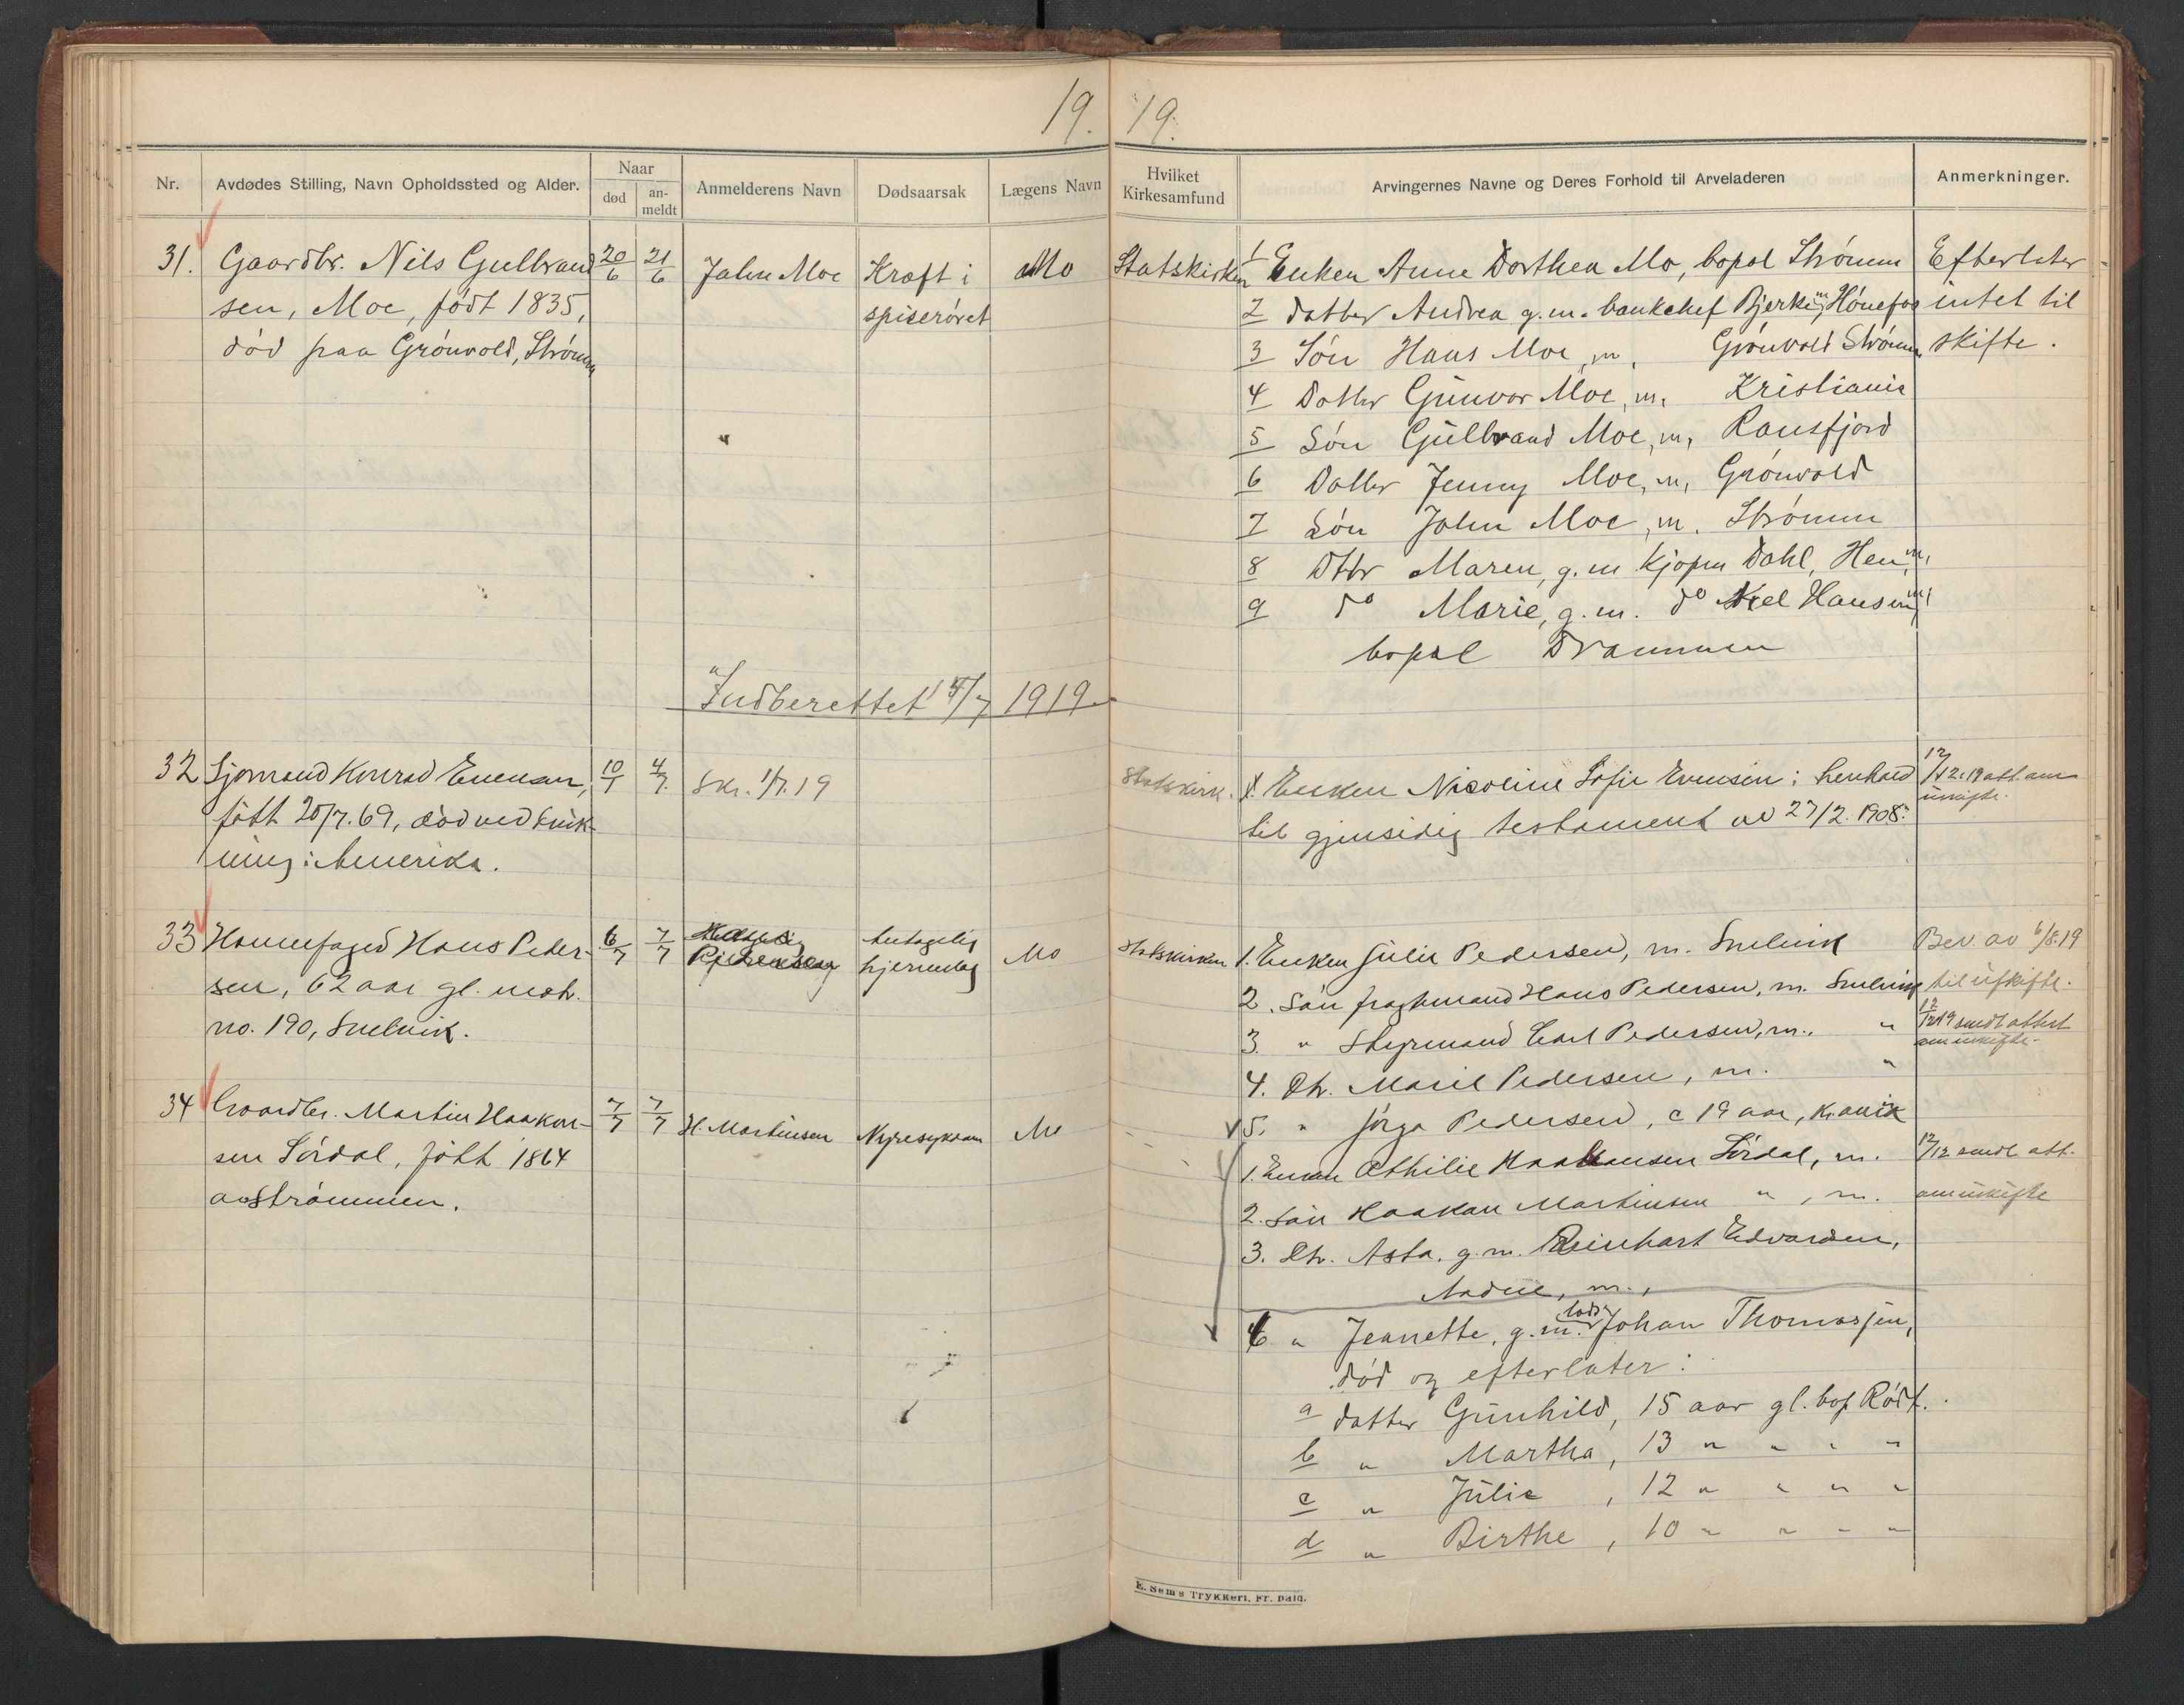 19.
19.
Nr.
Avdødes Stilling, Navn Opholdssted og Alder.
Naar
død
an-
meldt
Anmelderens Navn
Dødsaarsak
Lægens Navn
Hvilket
Kirkesamfund
Arvingernes Navne og Deres Forhold til Arveladeren
Anmerkninger.
31. Gaardbr. Nils Gulbrand 20/6 21/6 John Moe Kræft i Mo
sen, Moe, født 1835, spiserøret
død paa Grønvold, Strømm
Indberettet 15/7 1919.
32 Sjømand Konrad Evensen, 10/1 4/7. Skr. 1/7.19
født 20/7.69, død ved
ning i Amerika.
33 Havnefoged Hans Peder- 6/7 7/7 Pedersen Mo
sen, 62 aar gl. matr. hjerneslag
no. 190, Svelvik.
34 Gaardbr. Martin Haakon- 7/7 7/7 H. Martinsen Nyresygdom Mo
sen Sørdal, født 1864
av Strømmen.
Statskirken 1 Enken Anne Dorthea Mo, bopæl Strømm Efterlater
2 datter Andrea g.m. bankchef Bjerke, m. Hønefos intet til
3 Søn Hans Moe, m, Grønvold Strømm skifte.
4 Datter Gunvor Moe, m, Kristiania
5 Søn Gulbrand Moe, m, Ransfjord
6 Datter Jenny Moe, m, Grønvold
7 Søn John Moe, m. Strømm
8 Dttr Maren, g.m Kjøpm Dahl, Hen, m,
9 do Marie, g.m. do Axel Hansen, m,
bopæl Drammen
Statskirk. 1. Enken Nicoline Sofie Evensen i henhold 12/12.19 att. om
til gjensidig testament av 27/2. 1908. uskifte.
Statskirken 1. Enken Julie Pedersen, m. Svelvik Bev. av 6/8.19
2. Søn fragtmand Hans Pedersen, m. Svelvik til uskifte.
3. " Styrmand Carl Pedersen, m., " 12/12 19 sendt attest
om uskifte.
4. Dt. Marie Pedersen, m. "
5. " Jørga Pedersen, c 19 aar, Kr.anik
1. Enken Othilie Haakonsen Sørdal, m. 12/12 sendt att.
2. Søn Haakon Martinsen " , m. om uskifte
3. Dt. Asta. g.m. Reinhart Edvardsen,
m.,
6 " Jeanette, g.m. lods Johan Thomassen,
død og efterlater:
a datter Gunhild, 15 aar gl. bop Rødt.
b " Martha, 13 " " " "
c " Julie, 12 " " " "
d " Birthe, 10 " " " "
E. Sem's Trykkeri, Fr. hald.